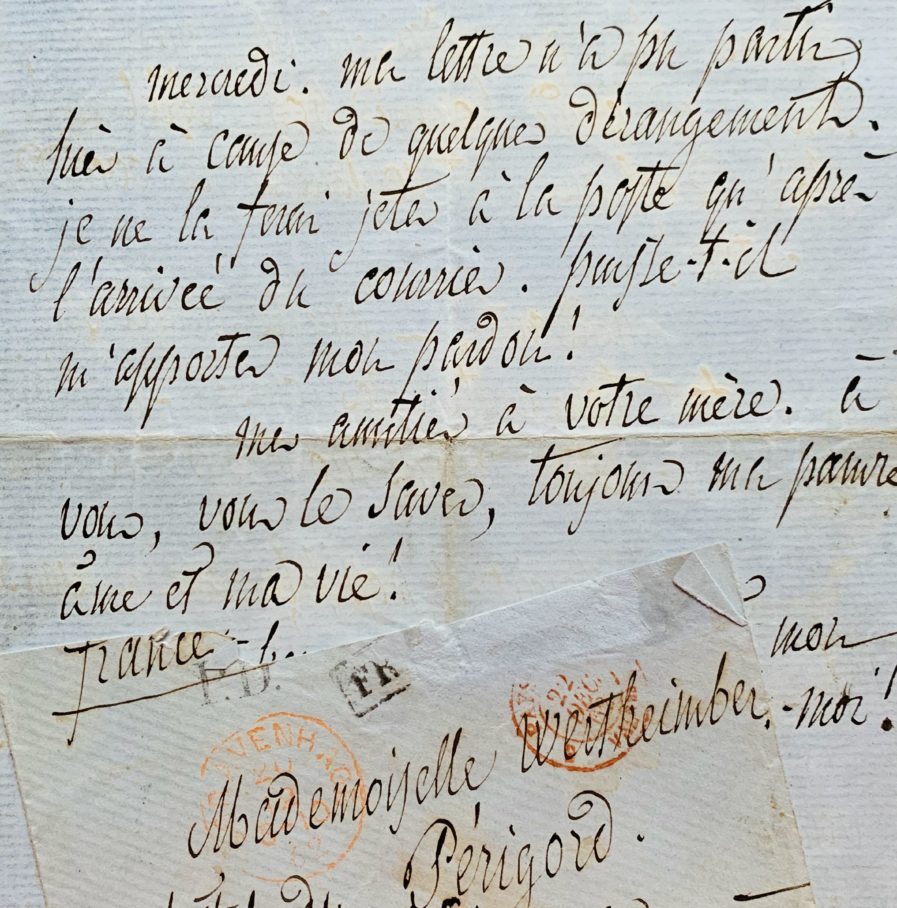 mercredi. ma lettre n'a pu partir
hier à cause de quelques dérangements.
je ne la ferai jeter à la poste qu'après
l'arrivée du courrier. puisse-t-il
m'apporter mon pardon!
mes amitiés à votre mère. à
vous, vous le savez, toujours ma pauvre
âme et ma vie!
mon
-moi!
france.
P.D.
FR
22
DEC
Mademoiselle Wertheimber.
Périgord.